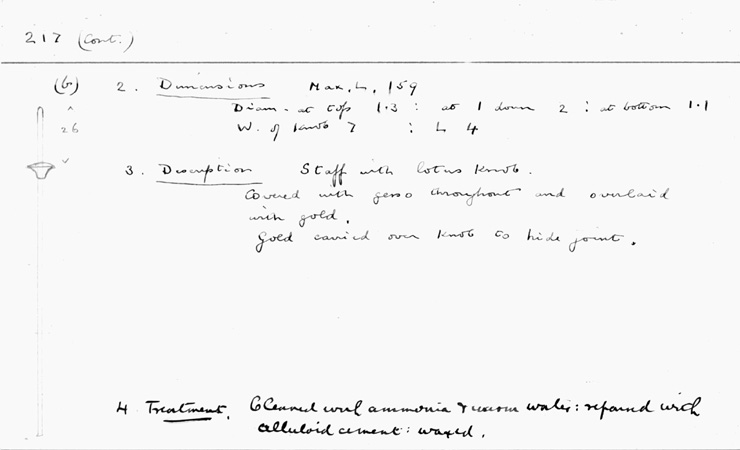 217 (cont.)
(b) 2. Dimensions Max. L. 159
Diam. at top 1·3 : at 1 down 2 : at bottom 1·1
26
W. of knob 7 : L 4
3. Description Staff with lotus knob.
Covered with gesso throughout and overlaid
with gold.
Gold carried over knob to hide joint.
4 Treatment. Cleaned with ammonia & warm water: repaired with
celluloid cement: waxed.